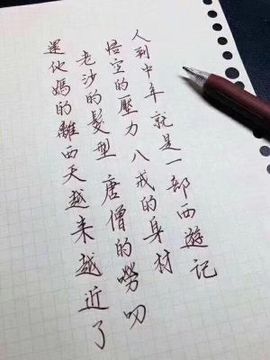 人到中年就是一部西遊记
悟空的壓力 八戒的身材
老沙的髮型 唐僧的嘮叨
還他媽的離西天越来越近了